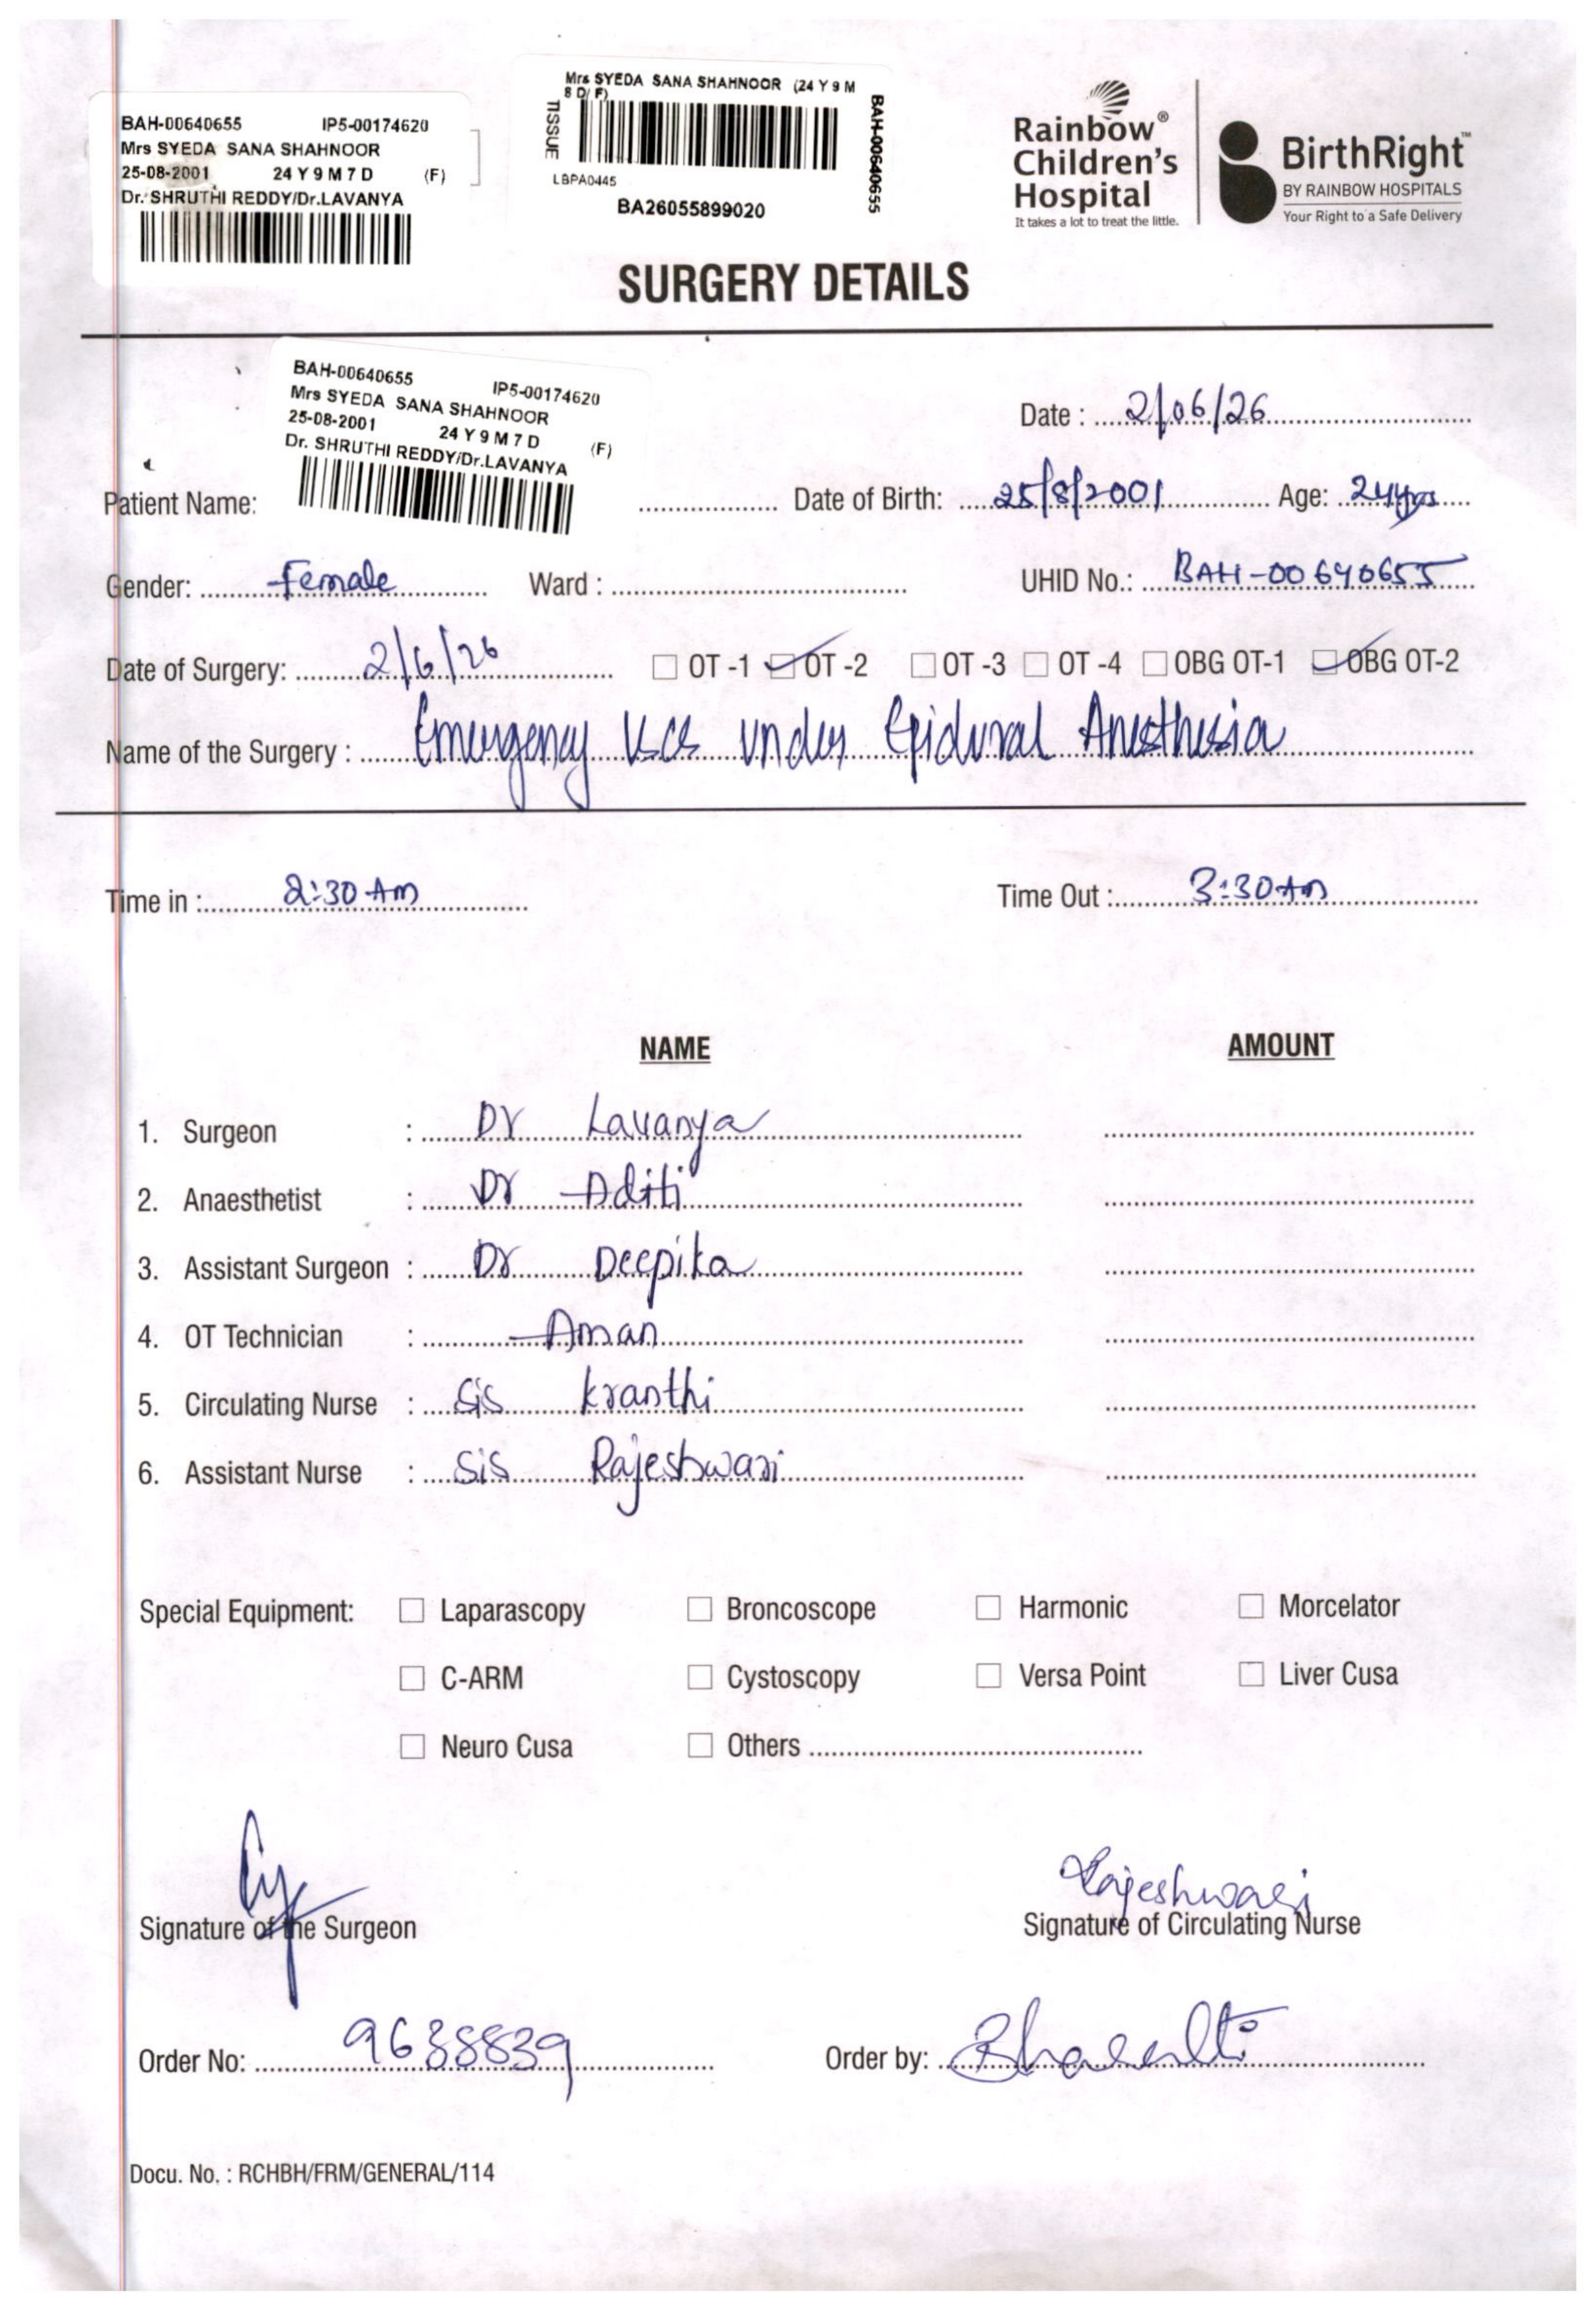 BAH-00640655 IP5-00174620
Mrs SYEDA SANA SHAHNOOR
25-08-2001 24 Y 9 M 7 D (F)
Dr. SHRUTHI REDDY/Dr.LAVANYA
Mrs SYEDA SANA SHAHNOOR (24 Y 9 M
8 D/ F)
TISSUE
BAH-00640655
LBPA0445
BA26055899020
Rainbow®
Children's
Hospital
It takes a lot to treat the little.
BirthRight™
BY RAINBOW HOSPITALS
Your Right to a Safe Delivery
SURGERY DETAILS
BAH-00640655 IP5-00174620
Mrs SYEDA SANA SHAHNOOR
25-08-2001 24 Y 9 M 7 D (F)
Dr. SHRUTHI REDDY/Dr.LAVANYA
Date : 2/06/26
Patient Name: Date of Birth: 25/8/2001 Age: 24yrs
Gender: Female Ward : UHID No.: BAH-00640655
Date of Surgery: 2/6/26 OT -1 OT -2 OT -3 OT -4 OBG OT-1 OBG OT-2
Name of the Surgery : Emergency under Epidural Anesthesia
Time in : 2:30 Am Time Out : 3:30 Am
NAME AMOUNT
1. Surgeon : Dr Lavanya
2. Anaesthetist : Dr Aditi
3. Assistant Surgeon : Dr Deepika
4. OT Technician : Aman
5. Circulating Nurse : Sis Kranthi
6. Assistant Nurse : Sis Rajeshwari
Special Equipment: Laparascopy Broncoscope Harmonic Morcelator
C-ARM Cystoscopy Versa Point Liver Cusa
Neuro Cusa Others
Rajeshwari
Signature of the Surgeon Signature of Circulating Nurse
Order No: 9638839 Order by:
Docu. No. : RCHBH/FRM/GENERAL/114